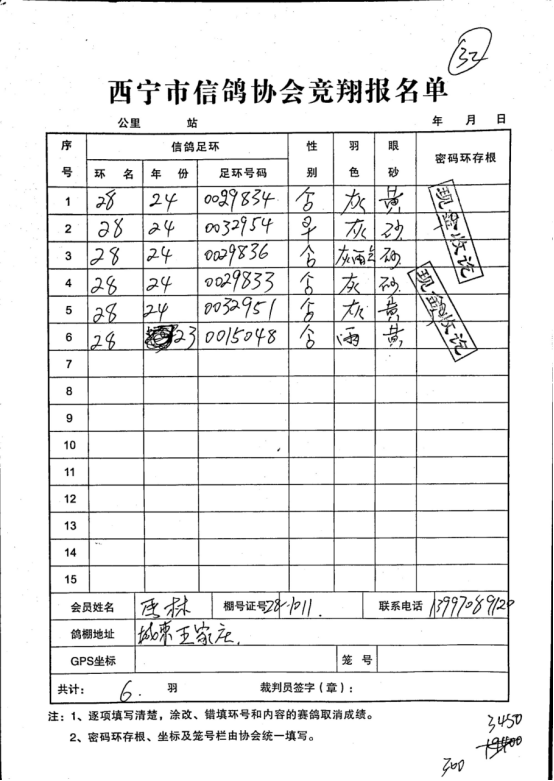 32
西宁市信鸽协会竞翔报名单
公里 站 年 月 日
序号 信鸽足环 性别 羽色 眼砂 密码环存根
环名 年份 足环号码
1 28 24 0029834 灰 黄
2 28 24 0032954 灰 砂
3 28 24 0029836 砂
4 28 24 0029833 灰 砂
5 28 24 0032951 灰 黄
6 28 23 0015048 雨 黄
现金收讫
现金收讫
7
8
9
10
11
12
13
14
15
会员姓名 林 棚号证号 28-1011 联系电话 13997089120
鸽棚地址 城东王家庄
GPS坐标 笼号
共计: 6. 羽 裁判员签字(章):
注:1、逐项填写清楚,涂改、错填环号和内容的赛鸽取消成绩。
2、密码环存根、坐标及笼号栏由协会统一填写。
3450
300